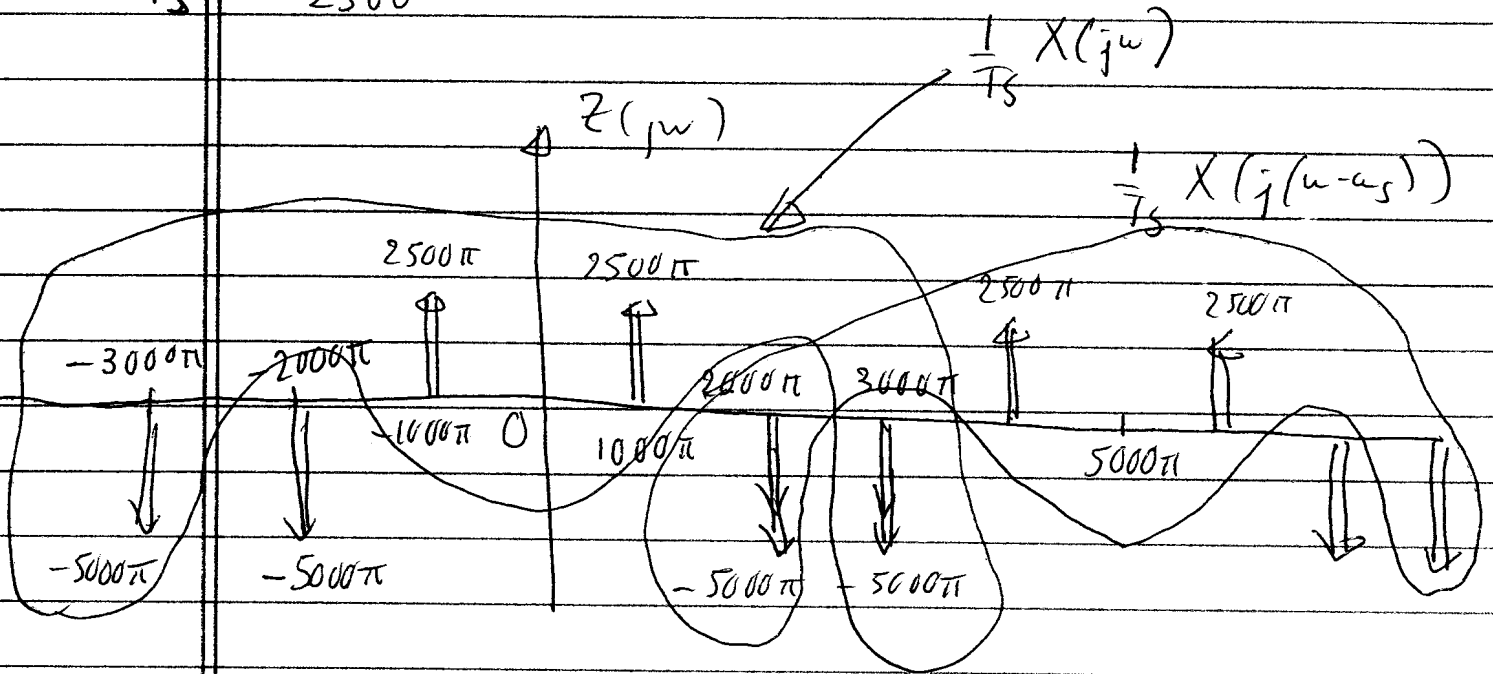 Ts 2500
1/Ts X(jω)
Z(jω)
1/Ts X(j(ω-ωs))
2500π 2500π 2500π 2500π
-3000π -2000π 2000π 3000π
-1000π 0 1000π 5000π
-5000π -5000π -5000π -5000π